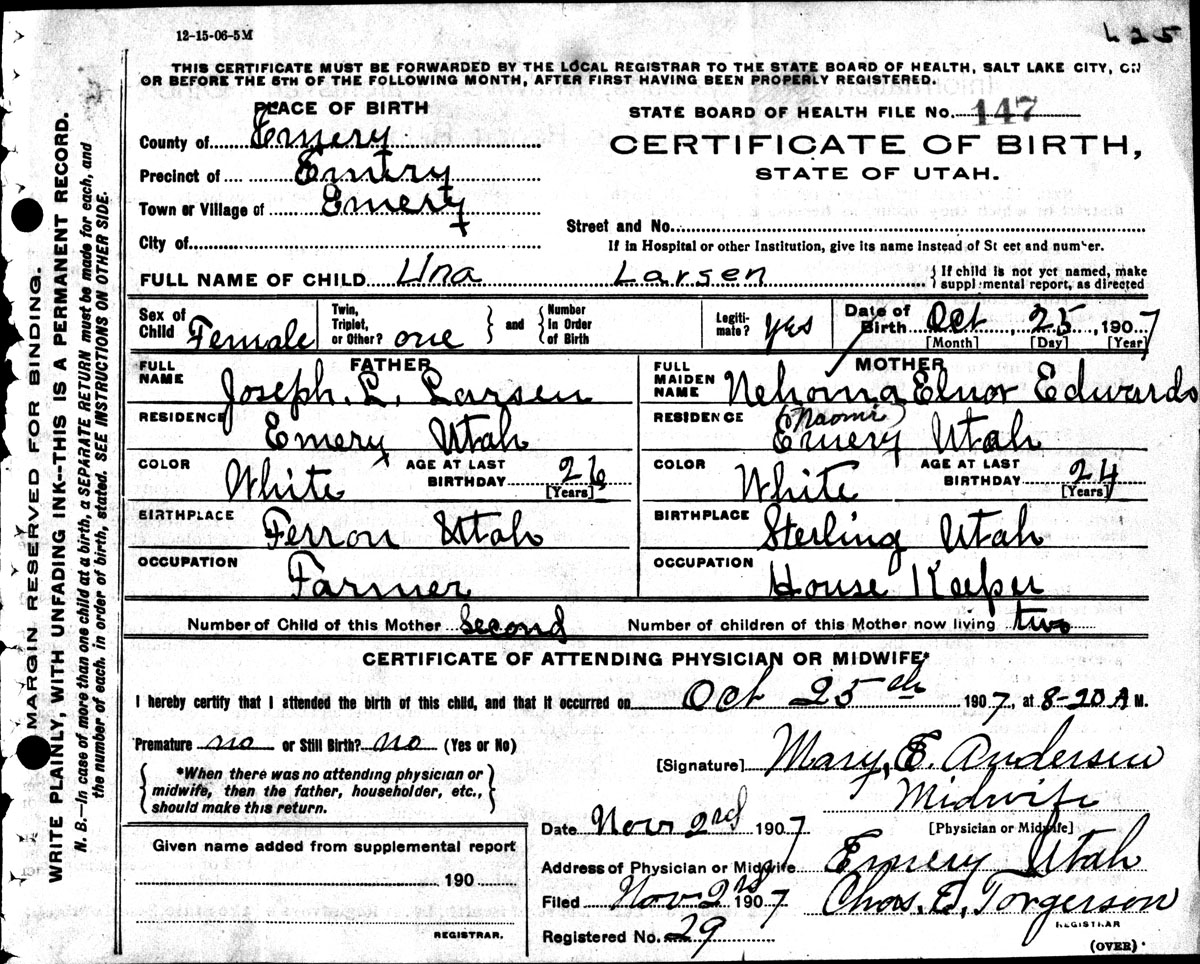 12-15-06-5M
425
THIS CERTIFICATE MUST BE FORWARDED BY THE LOCAL REGISTRAR TO THE STATE BOARD OF HEALTH, SALT LAKE CITY, ON
OR BEFORE THE 5TH OF THE FOLLOWING MONTH, AFTER FIRST HAVING BEEN PROPERLY REGISTERED.
PLACE OF BIRTH
County of Emery
Precinct of Emery
Town or Village of Emery
City of
STATE BOARD OF HEALTH FILE No. 147
CERTIFICATE OF BIRTH,
STATE OF UTAH.
Street and No.
If in Hospital or other Institution, give its name instead of Street and number.
FULL NAME OF CHILD Una Larsen { If child is not yet named, make
supplemental report, as directed
Sex of Child Female
Twin, Triplet, or Other? one } and { Number In Order of Birth
Legiti-mate? yes
Date of Birth Oct, 25, 1907
[Month] [Day] [Year]
FATHER
FULL NAME Joseph. L. Larsen
RESIDENCE Emery Utah
COLOR White AGE AT LAST BIRTHDAY 26
[Years]
BIRTHPLACE Ferron Utah
OCCUPATION Farmer
MOTHER
FULL MAIDEN NAME Nehoma Elnor Edwards
(Naomi)
RESIDENCE Emery Utah
COLOR White AGE AT LAST BIRTHDAY 24
[Years]
BIRTHPLACE Sterling Utah
OCCUPATION House Keeper
Number of Child of this Mother Second Number of children of this Mother now living two
CERTIFICATE OF ATTENDING PHYSICIAN OR MIDWIFE*
I hereby certify that I attended the birth of this child, and that it occurred on Oct 25th 1907, at 8-20 A M.
Premature no or Still Birth? no (Yes or No)
{ *When there was no attending physician or
midwife, then the father, householder, etc.,
should make this return. }
[Signature] Mary, E. Andersen
Midwife
[Physician or Midwife]
Date Nov 2nd 1907
Address of Physician or Midwife Emery Utah
Filed Nov 2nd 1907 Chas. E. Torgerson
REGISTRAR
Registered No. 29
(OVER)
Given name added from supplemental report
190
REGISTRAR.
MARGIN RESERVED FOR BINDING.
WRITE PLAINLY, WITH UNFADING INK--THIS IS A PERMANENT RECORD.
N. B.--In case of more than one child at a birth, a SEPARATE RETURN must be made for each, and
the number of each, in order of birth, stated. SEE INSTRUCTIONS ON OTHER SIDE.